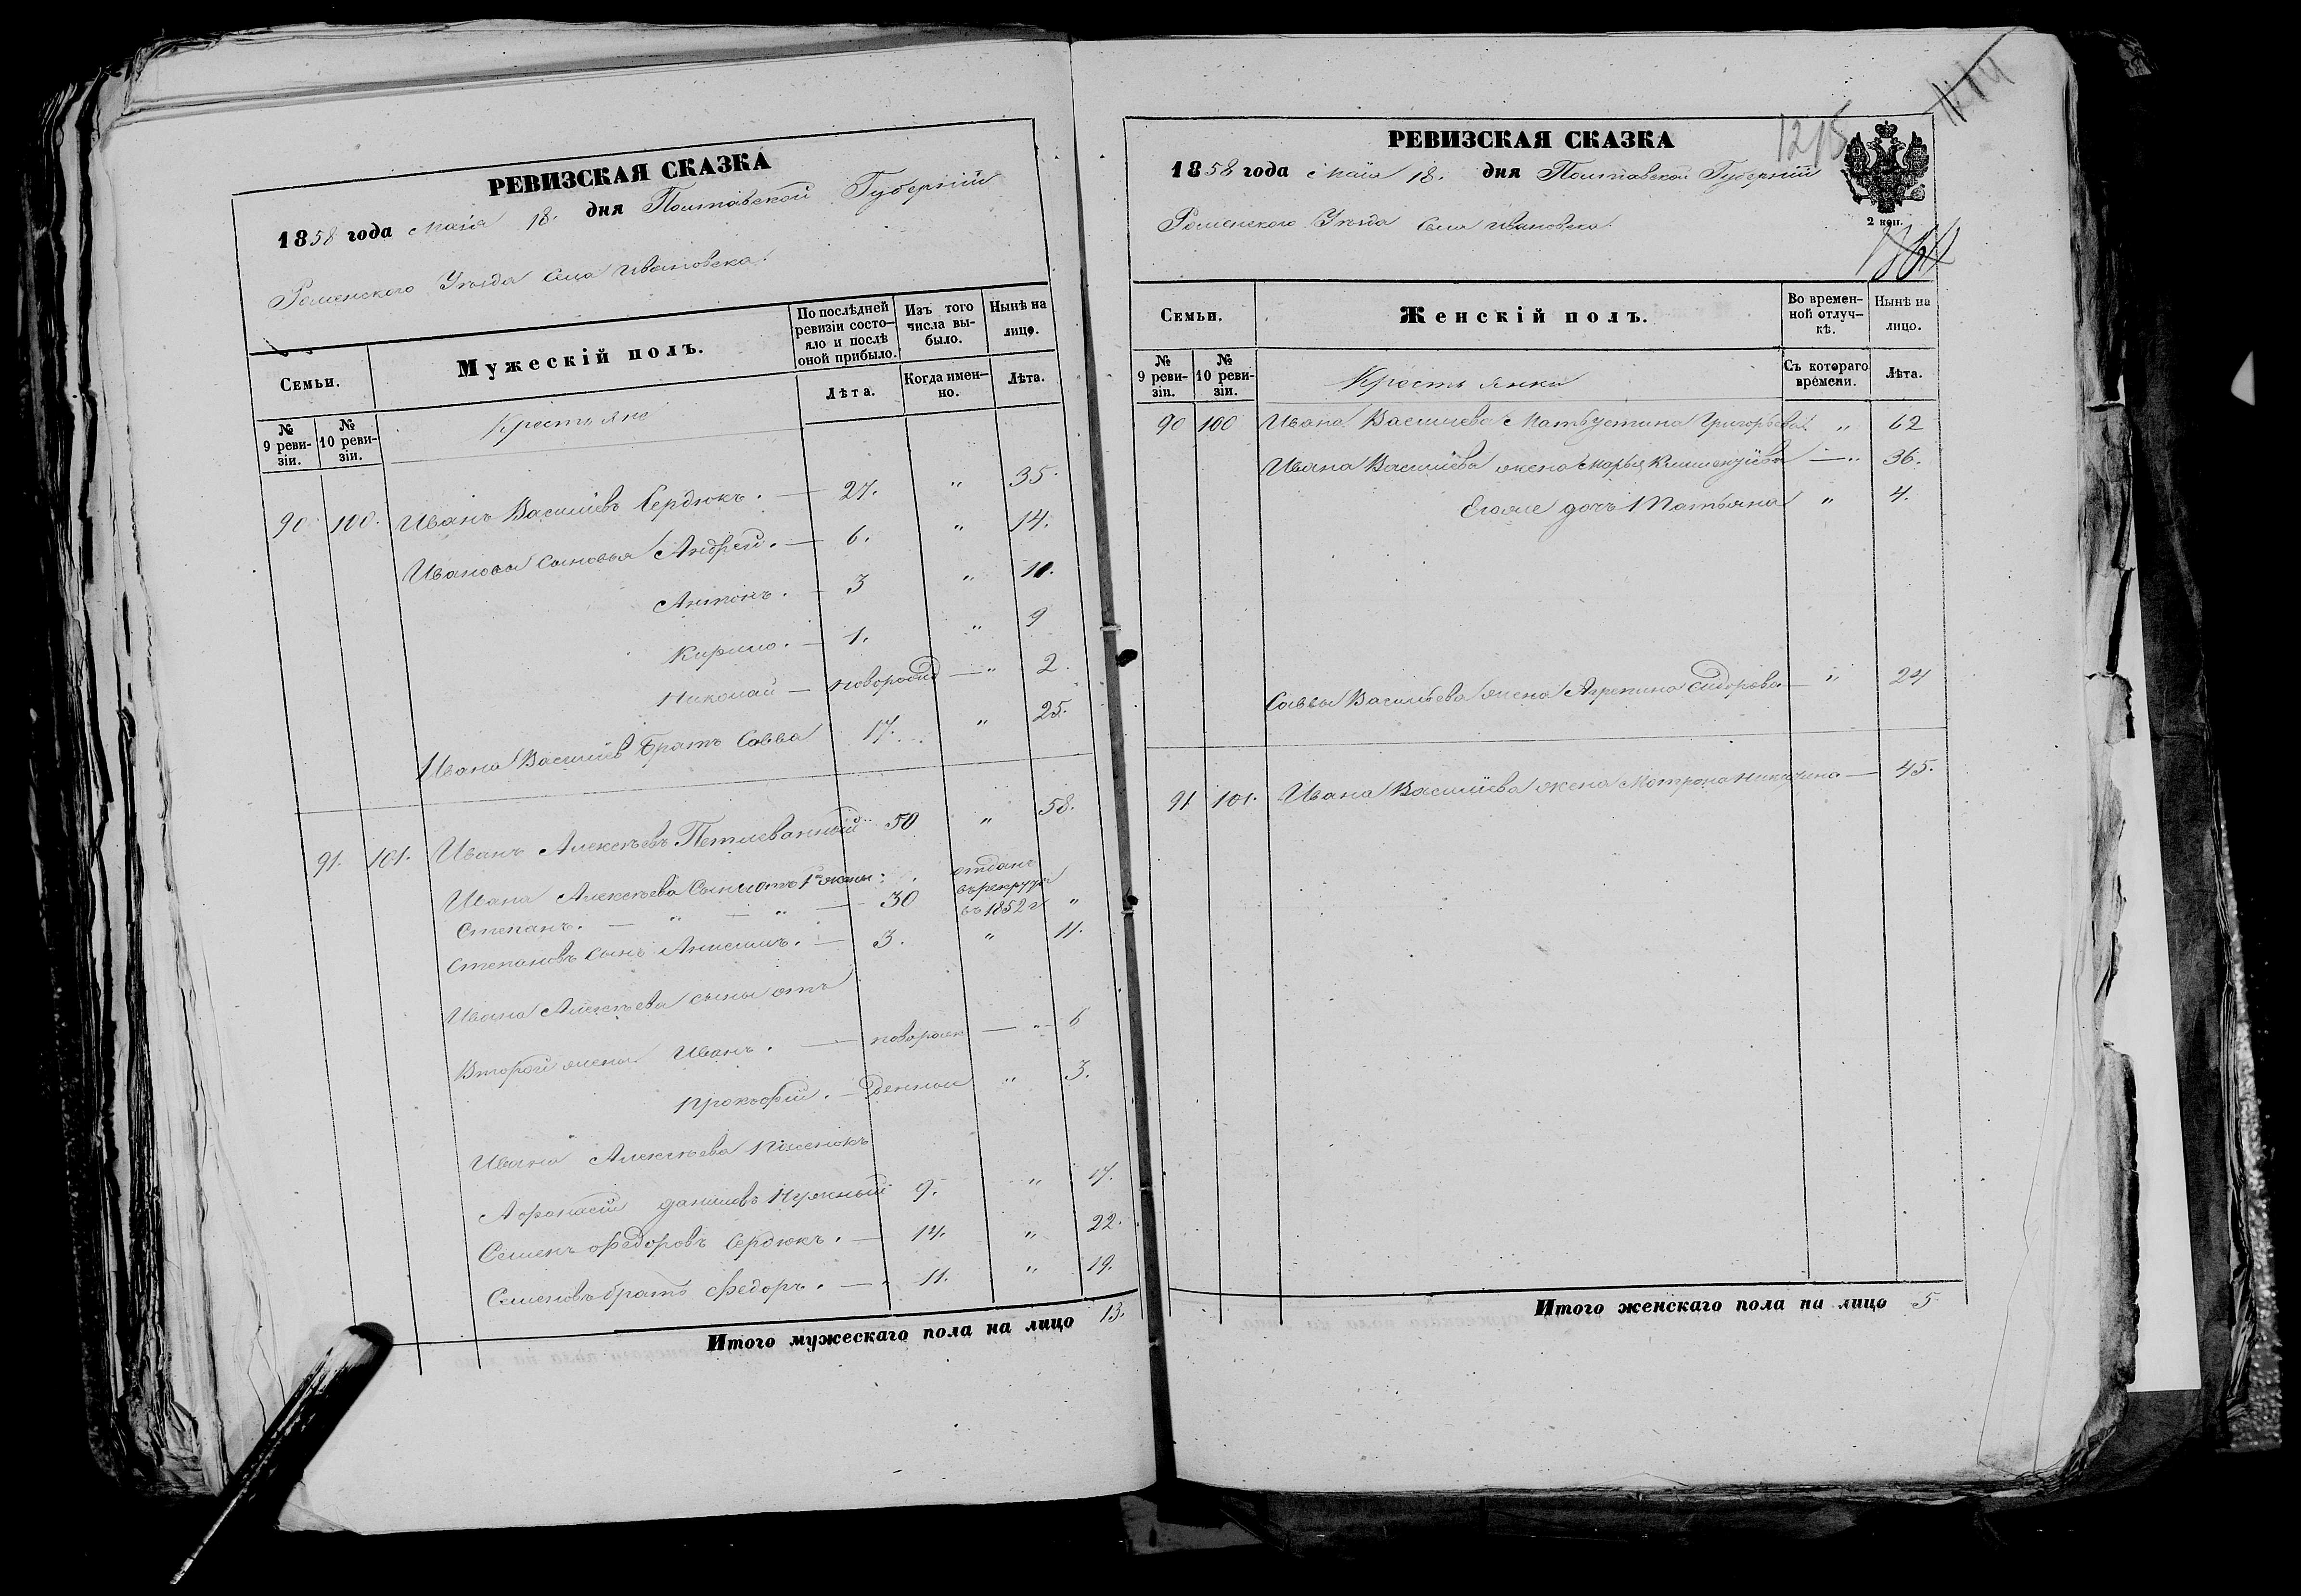 РЕВИЗСКАЯ СКАЗКА
1858 года Маія 18. дня Полтавской Губерніи
Роменского Уѣзда Села Ивановска.
Семьи.
Мужескій полъ.
По послѣдней ревизіи состо-яло и послѣ оной прибыло.
Изъ того числа вы-было.
Нынѣ на лицо.
№ 9 реви-зіи.
№ 10 реви-зіи.
Крестьяне
Лѣта.
Когда имен-но.
Лѣта.
90 100. Иванъ Васильевъ Сердюкъ. — 27. " 35.
Ивановы сыновья Андрей. — 6. " 14.
Антонъ. — 3 " 11.
Кирило. — 1. " 9
Николай — новорожд — " 2.
Ивана Васильев братъ Савва 17. " 25.
91. 101. Иванъ Алексѣевъ Петлеванный 50 " 58.
Ивана Алексѣева Сыны отъ 1й жены.
Степанъ. — " — " — 30 отданъ въ рекруты въ 1852 г "
Степановъ сынъ Анисимъ. — 3. " 11.
Ивана Алексѣева сыны отъ
Второй жены Иванъ. — новорож — " — 6
Прокофій. — денные " 3.
Ивана Алексѣева
Афонасій Даниловъ 9. " 17.
Семенъ Федоровъ Сердюкъ. — 14. " 22.
Семеновъ братъ Федоръ. — 11. " 19.
Итого мужескаго пола на лицо 13.
1215
РЕВИЗСКАЯ СКАЗКА
1858 года Маія 18. дня Полтавской Губерніи
2 коп.
Роменского Уѣзда Села Ивановска.
Семьи.
Женскій полъ.
Во времен-ной отлуч-кѣ.
Нынѣ на лицо.
№ 9 реви-зіи.
№ 10 реви-зіи.
Крестьянки
Съ котораго времени.
Лѣта.
90 100 Ивана Васильева Мать Устина Григорьева " 62
Ивана Васильева жена Марья — " 36.
Егоже дочь Татьяна " 4.
Саввы Васильева жена Агрепина Сидорова — " 24
91 101. Ивана Васильева жена Мотрона Никитина — 45.
Итого женскаго пола на лицо 5